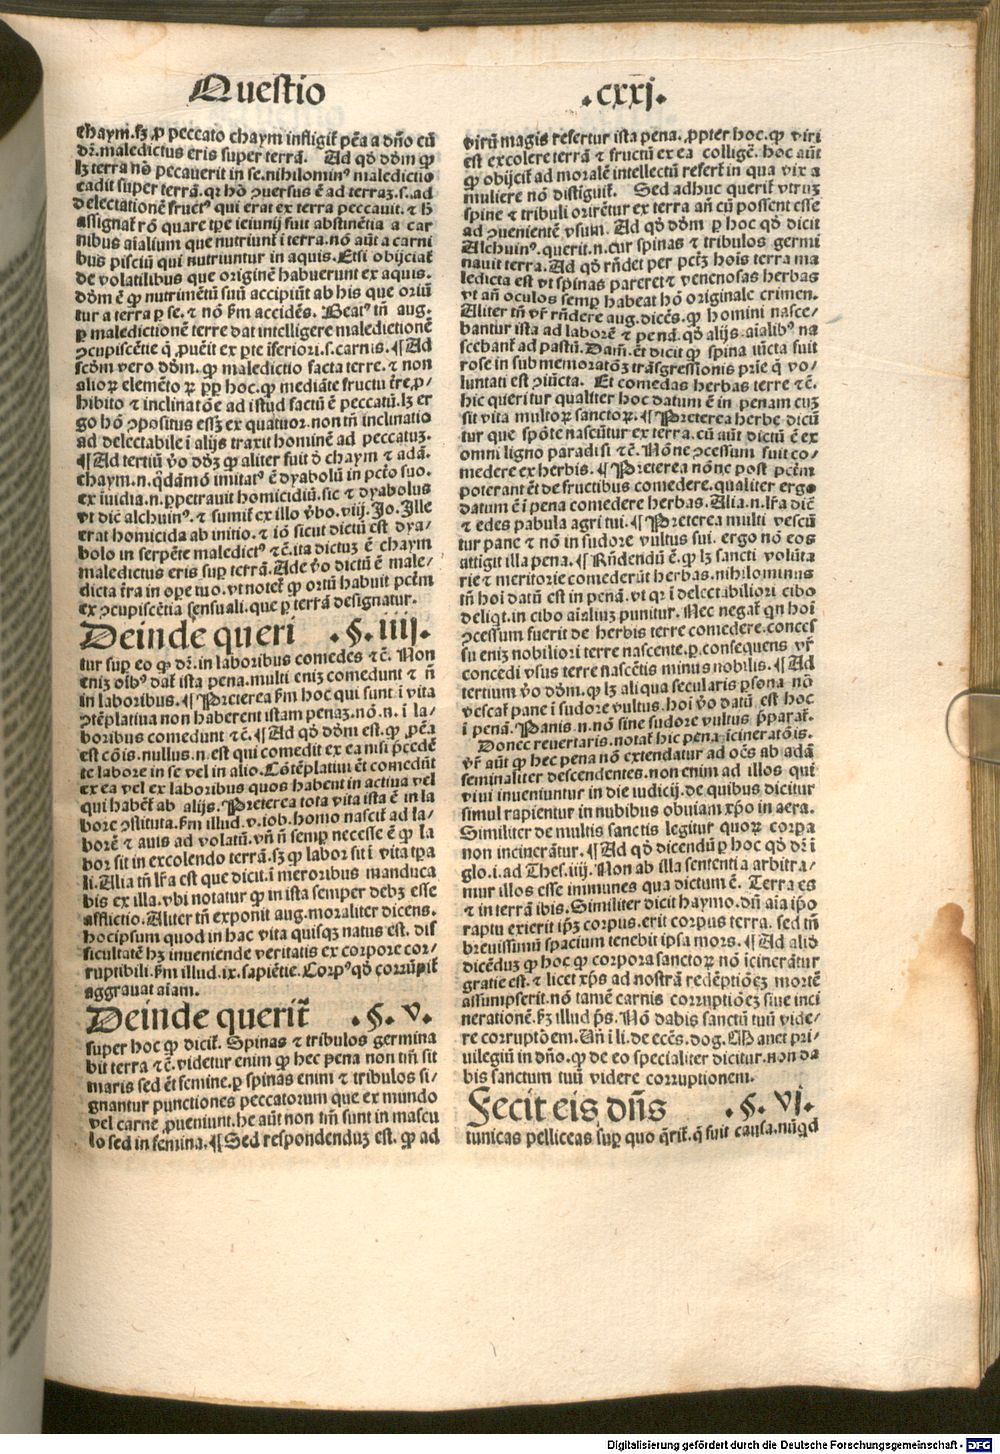 Questio .cxxj.
chaym̄. sꝫ ꝓ peccato chaym infligit᷑ pēa a dn̄o cū
dr̄. maledictus eris super terrā. Ad qd̄ dd̄m ꝙ
lꝫ terra nō pecauerit in se. nihilominꝰ maledictio
cadit super terrā. qꝛ hō ꝯuersus ē ad terraꝫ. s. ad
delectationē fructꝰ qui erat ex terra peccauit. ⁊ h̄
assignat᷑ rō quare tp̄e ieiunij fuit abstinētia a car
nibus aīalium que nutriunt᷑ i terra. nō aūt a carni
bus pisciū qui nutriuntur in aquis. Etsi obijciat᷑
de volatilibus que originē habuerunt ex aquis.
dd̄m ē ꝙ nutrimētū suū accipiūt ab his que oriū
tur a terra ꝑ se. ⁊ nō ẜm accidēs. Beatꝰ tn̄ aug.
ꝑ maledictionē terre dat intelligere maledictionē
ꝯcupiscētie q̄ ꝓuēit ex ꝑte īferiori. s. carnis. ¶ Ad
scd̄m vero dd̄m. ꝙ maledictio facta terre. ⁊ non
alioꝝ elemēto ꝝ ꝓpꝑ hoc. ꝙ mediāte fructu tr̄e ꝓ/
hibito ⁊ inclinatōe ad istud factū ē peccatū. lꝫ er
go hō ꝯpositus essꝫ ex quatuor. non tn̄ inclinatio
ad delectabile i alijs traxit hominē ad peccatuꝫ.
¶ Ad tertiū v̄o dd̄ꝫ ꝙ aliter fuit d̄ chaym ⁊ adā.
chaym. n. q̄dāmō imitatꝰ ē dyabolū in pctō suo.
ex iuidia. n. ꝑpetrauit homicidiū. sic ⁊ dyabolus
vt dic̄ alchuinꝰ. ⁊ sumit᷑ ex illo v̄bo. viij. Jo. Jlle
erat homicida ab initio. ⁊ iō sicut dictū est dya/
bolo in serpēte maledictꝰ ⁊c̄. ita dictuꝫ ē chaym
maledictus eris suꝑ terrā. Ade v̄o dictū ē male/
dicta tr̄a in oꝑe tuo. vt notet᷑ ꝙ ortū habuit pctm̄
ex ꝯcupiscētia sensuali. que ꝑ terrā designatur.
Deinde queri .§. iiij.
tur suꝑ eo ꝙ dr̄. in laboribus comedes ⁊c̄. Non
eniꝫ oībꝰ dat᷑ ista pena. multi eniꝫ comedunt ⁊ n̄
in laboribus. ¶ Preterea ẜm hoc qui sunt ī vita
ꝯtēplatiua non haberent istam penaꝫ. nō. n. ī la/
boribus comedunt ⁊c̄. ¶ Ad qd̄ dd̄m est. ꝙ pēa
est cōis. nullus. n. est qui comedit ex ea nisi p̄cedē
te labore in se vel in alio. Cōtēplatiui ēt comedūt
ex ea vel ex laboribus quos habent in actiua vel
qui habēt ab alijs. Preterea tota vita ista ē in la
bore ꝯstituta. ẜm illud. v. iob. homo nascit᷑ ad la/
borē ⁊ auis ad volatū. vn̄ n̄ semꝑ necesse ē ꝙ la
bor sit in excolendo terrā. sꝫ ꝙ labor sit ī vita tp̄a
li. Alia tn̄ lr̄a est que dicit. i meroribus manduca
bis ex illa. vbi notatur ꝙ in ista semper debꝫ esse
afflictio. Aliter tn̄ exponit aug. moraliter dicens.
hocipsum quod in hac vita quisqꝫ natus est. dif
ficultatē hꝫ inueniende veritatis ex corpore cor/
ruptibili. ẜm illud. ix. sapiētie. Corpꝰ qd̄ corrūpit᷑
aggrauat aīam.
Deinde querit᷑ .§. v.
super hoc ꝙ dicit᷑. Spinas ⁊ tribulos germina
bit terra ⁊c̄. videtur enim ꝙ hec pena non tn̄ sit
maris sed ēt femine. ꝑ spinas enim ⁊ tribulos si/
gnantur punctiones peccatorum que ex mundo
vel carne ꝓueniunt. he aūt non tm̄ sunt in mascu
lo sed in femina. ¶ Sed respondenduꝫ est. ꝙ ad
virū magis refertur ista pena. ꝓpter hoc. ꝙ viri
est excolere terrā ⁊ fructū ex ea colligē. hoc aūt
ꝙ obijcit᷑ ad moralē intellectū refert᷑ in qua vix a
muliere nō distiguit᷑. Sed adhuc querit᷑ vtruꝫ
spine ⁊ tribuli orirētur ex terra an̄ cū possent esse
ad ꝯuenientē vsum. Ad qd̄ dd̄m ꝑ hoc qd̄ dicit
Alchuinꝰ. querit. n. cur spinas ⁊ tribulos germi
nauit terra. Ad qd̄ rn̄det per pctꝫ hoīs terra ma
ledicta est vt spinas pareret ⁊ venenosas herbas
vt an̄ oculos semꝑ habeat hō originale crimen.
Aliter tn̄ vr̄ rn̄dere aug. dicēs. ꝙ homini nasce/
bantur ista ad laborē ⁊ penā. qd̄ alijs aīalibꝰ na
scebant᷑ ad pastū. Dam̄. ēt dicit ꝙ spina iūcta fuit
rose in submemoratōꝫ trāsgressionis prīe q̄ vo/
luntati est ꝯiūcta. Et comedas herbas terre ⁊c̄.
hic queritur qualiter hoc datum ē in penam cuꝫ
sit vita multoꝝ sanctoꝝ. ¶ Preterea herbe dicū
tur que spōte nascūtur ex terra. cū aūt dictū ē ex
omni ligno paradisi ⁊c̄. Nōne ꝯcessum fuit co/
medere ex herbis. ¶ Preterea nōne post pctm̄
poterant ēt de fructibus comedere. qualiter ergo
datum ē i pena comedere herbas. Alia. n. lr̄a dic̄
⁊ edes pabula agri tui. ¶ Preterea multi vescū
tur pane ⁊ nō in sudore vultus sui. ergo nō eos
attigit illa pena. ¶ Rn̄dendū ē. ꝙ lꝫ sancti volūta
rie ⁊ meritorie comederūt herbas. nihilominus
tn̄ hoī datū est in penā. vt qꝛ ī delectabiliori cibo
deliqt̄. in cibo aīaliuꝫ punitur. Nec negat᷑ qn̄ hoī
ꝯcessum fuerit de herbis terre comedere. conces
su eniꝫ nobiliori terre nascente. ꝑ consequens vr̄
concedi vsus terre nascētis minus nobilis. ¶ Ad
tertium v̄o dd̄m. ꝙ lꝫ aliqua secularis ꝑsona nō
vescat᷑ pane ī sudore vultus. hoī v̄o datū est hoc
ī penā. Panis. n. nō sine sudore vultus p̄parat᷑.
Donec reuertaris. notat᷑ hic pena icineratōis.
vr̄ aūt ꝙ hec pena nō extendatur ad oēs ab adā
seminaliter descendentes. non enim ad illos qui
viui inueniuntur in die iudicij. de quibus dicitur
simul rapientur in nubibus obuiam xp̄o in aera.
Similiter de multis sanctis legitur quoꝝ corpa
non incinerātur. ¶ Ad qd̄ dicendū ꝑ hoc qd̄ dr̄ ī
glo. i. ad Thes. iiij. Non ab illa sententia arbitra/
mur illos esse immunes qua dictum ē. Terra es
⁊ in terrā ibis. Similiter dicit haymo. dū aīa ip̄o
raptu exierit ip̄ꝫ corpus. erit corpus terra. sed tn̄
breuissimū spacium tenebit ipsa mors. ¶ Ad aliō
dicēduꝫ ꝙ hoc ꝙ corpora sanctoꝝ nō icinerātur
gratie est. ⁊ licet xp̄s ad nostrā redēptiōeꝫ mortē
assumpserit. nō tamē carnis corruptiōeꝫ siue inci
nerationē. ẜꝫ illud p̄s. Nō dabis sanctū tuū vide/
re corruptōem. Vn̄ ī li. de ecc̄s. dog. Manet pri/
uilegiū in dn̄o. ꝙ de eo specialiter dicitur. non da
bis sanctum tuū videre corruptionem.
Fecit eis dn̄s .§. vj.
tunicas pelliceas suꝑ quo q̄rit᷑. q̄ fuit causa. nūqd
Digitalisierung gefördert durch die Deutsche Forschungsgemeinschaft - DFG